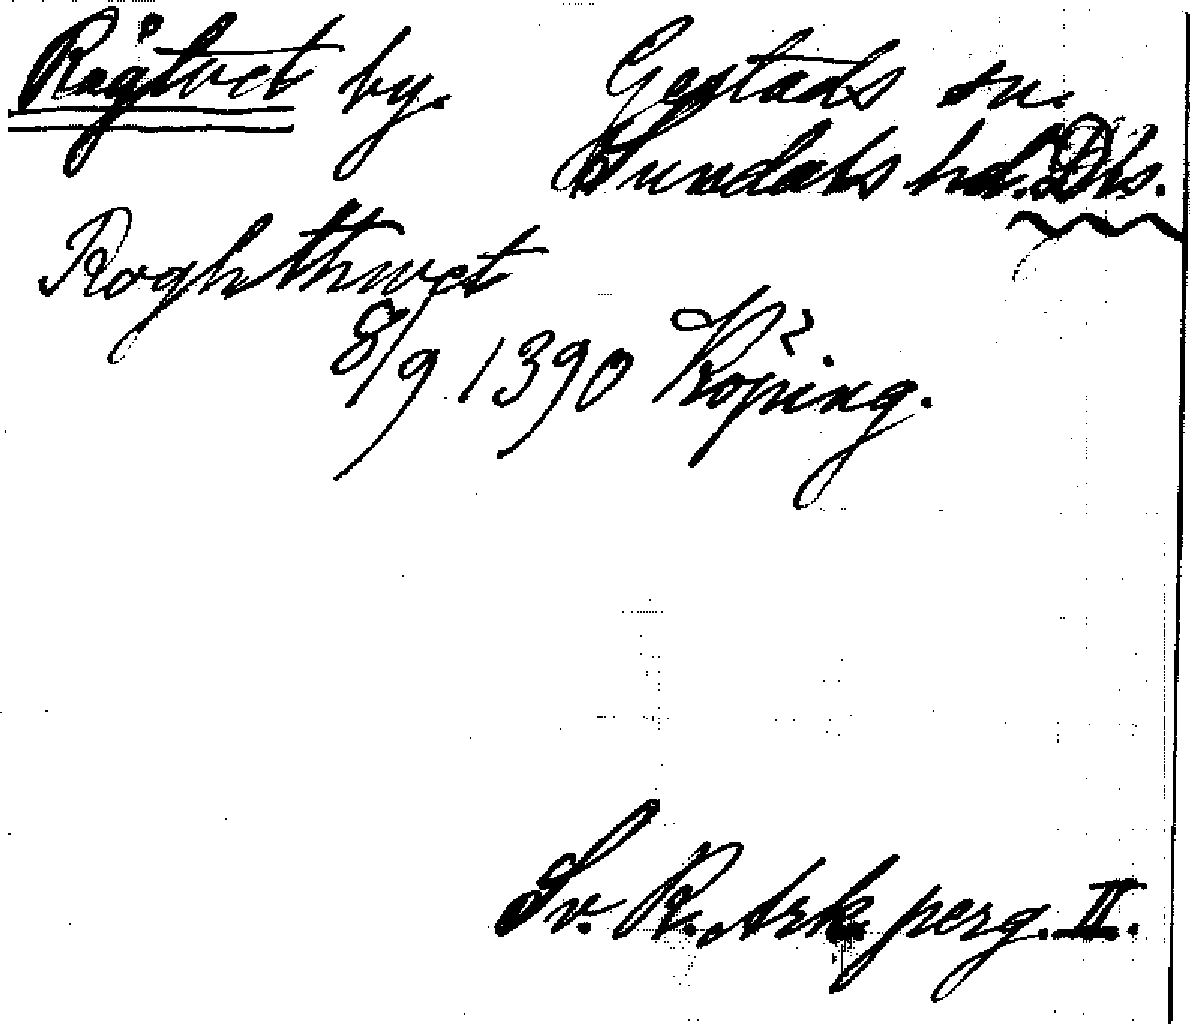 Rågtvet by. Gestads sn.
Sundals hd. Dls.
Roghthwet
8/9 1390 Köping.
Sv. R. Ark perg. II.